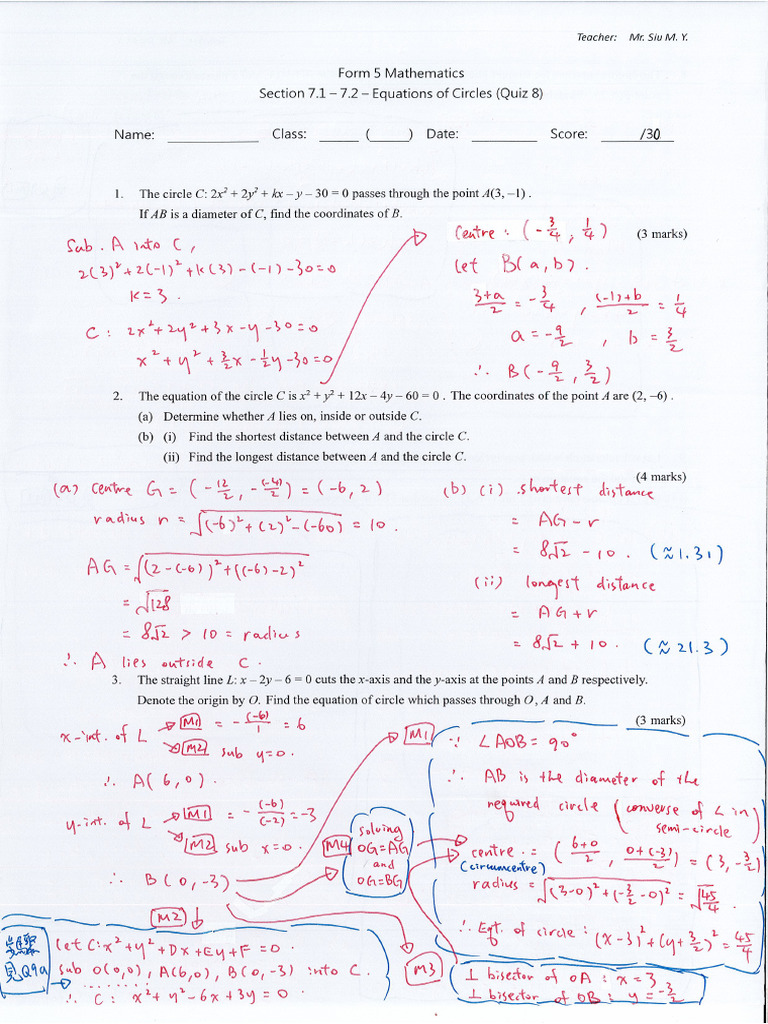 Teacher: Mr. Siu M. Y.
Form 5 Mathematics
Section 7.1 – 7.2 – Equations of Circles (Quiz 8)
Name: ____________ Class: _____ (_____) Date: _________ Score: _____/30
1. The circle C: 2x² + 2y² + kx – y – 30 = 0 passes through the point A(3, –1) .
If AB is a diameter of C, find the coordinates of B.
(3 marks)
Sub. A into C,
2(3)²+2(-1)²+k(3)-(-1)-30=0
k=3.
C: 2x²+2y²+3x-y-30=0
x²+y²+3/2x-1/2y-30=0
Centre: (-3/4, 1/4)
Let B(a,b).
(3+a)/2 = -3/4 , ((-1)+b)/2 = 1/4
a=-9/2 , b=3/2
∴ B(-9/2, 3/2)
2. The equation of the circle C is x² + y² + 12x – 4y – 60 = 0 . The coordinates of the point A are (2, –6) .
(a) Determine whether A lies on, inside or outside C.
(b) (i) Find the shortest distance between A and the circle C.
(ii) Find the longest distance between A and the circle C.
(4 marks)
(a) Centre G = (-12/2, -(-4)/2) = (-6, 2)
radius r = √((-6)²+(2)²-(-60)) = 10.
AG = √((2-(-6))²+((-6)-2)²
= √128
= 8√2 > 10 = radius
∴ A lies outside C.
(b) (i) shortest distance
= AG-r
= 8√2 - 10. (≈1.31)
(ii) longest distance
= AG+r
= 8√2 + 10. (≈21.3)
3. The straight line L: x – 2y – 6 = 0 cuts the x-axis and the y-axis at the points A and B respectively.
Denote the origin by O. Find the equation of circle which passes through O, A and B.
(3 marks)
x-int. of L M1 = -(-6)/1 = 6
M2 sub y=0.
∴ A(6,0).
y-int. of L M1 = -(-6)/(-2) = -3
M2 sub x=0.
∴ B(0,-3)
M1
∵ ∠AOB = 90°
∴ AB is the diameter of the
required circle (converse of ∠ in
semi-circle)
centre = ((6+0)/2, (0+(-3))/2) = (3, -3/2)
(circumcentre)
radius = √((3-0)²+(-3/2-0)²) = √(45/4)
∴ Eqt. of circle: (x-3)²+(y+3/2)²=45/4
M4
solving
OG=AG
and
OG=BG
M2
Let C: x²+y²+Dx+Ey+F=0.
sub O(0,0), A(6,0), B(0,-3) into C.
......
∴ C: x²+y²-6x+3y=0.
見Q9a
M3
⊥ bisector of OA: x=3
⊥ bisector of OB: y=-3/2